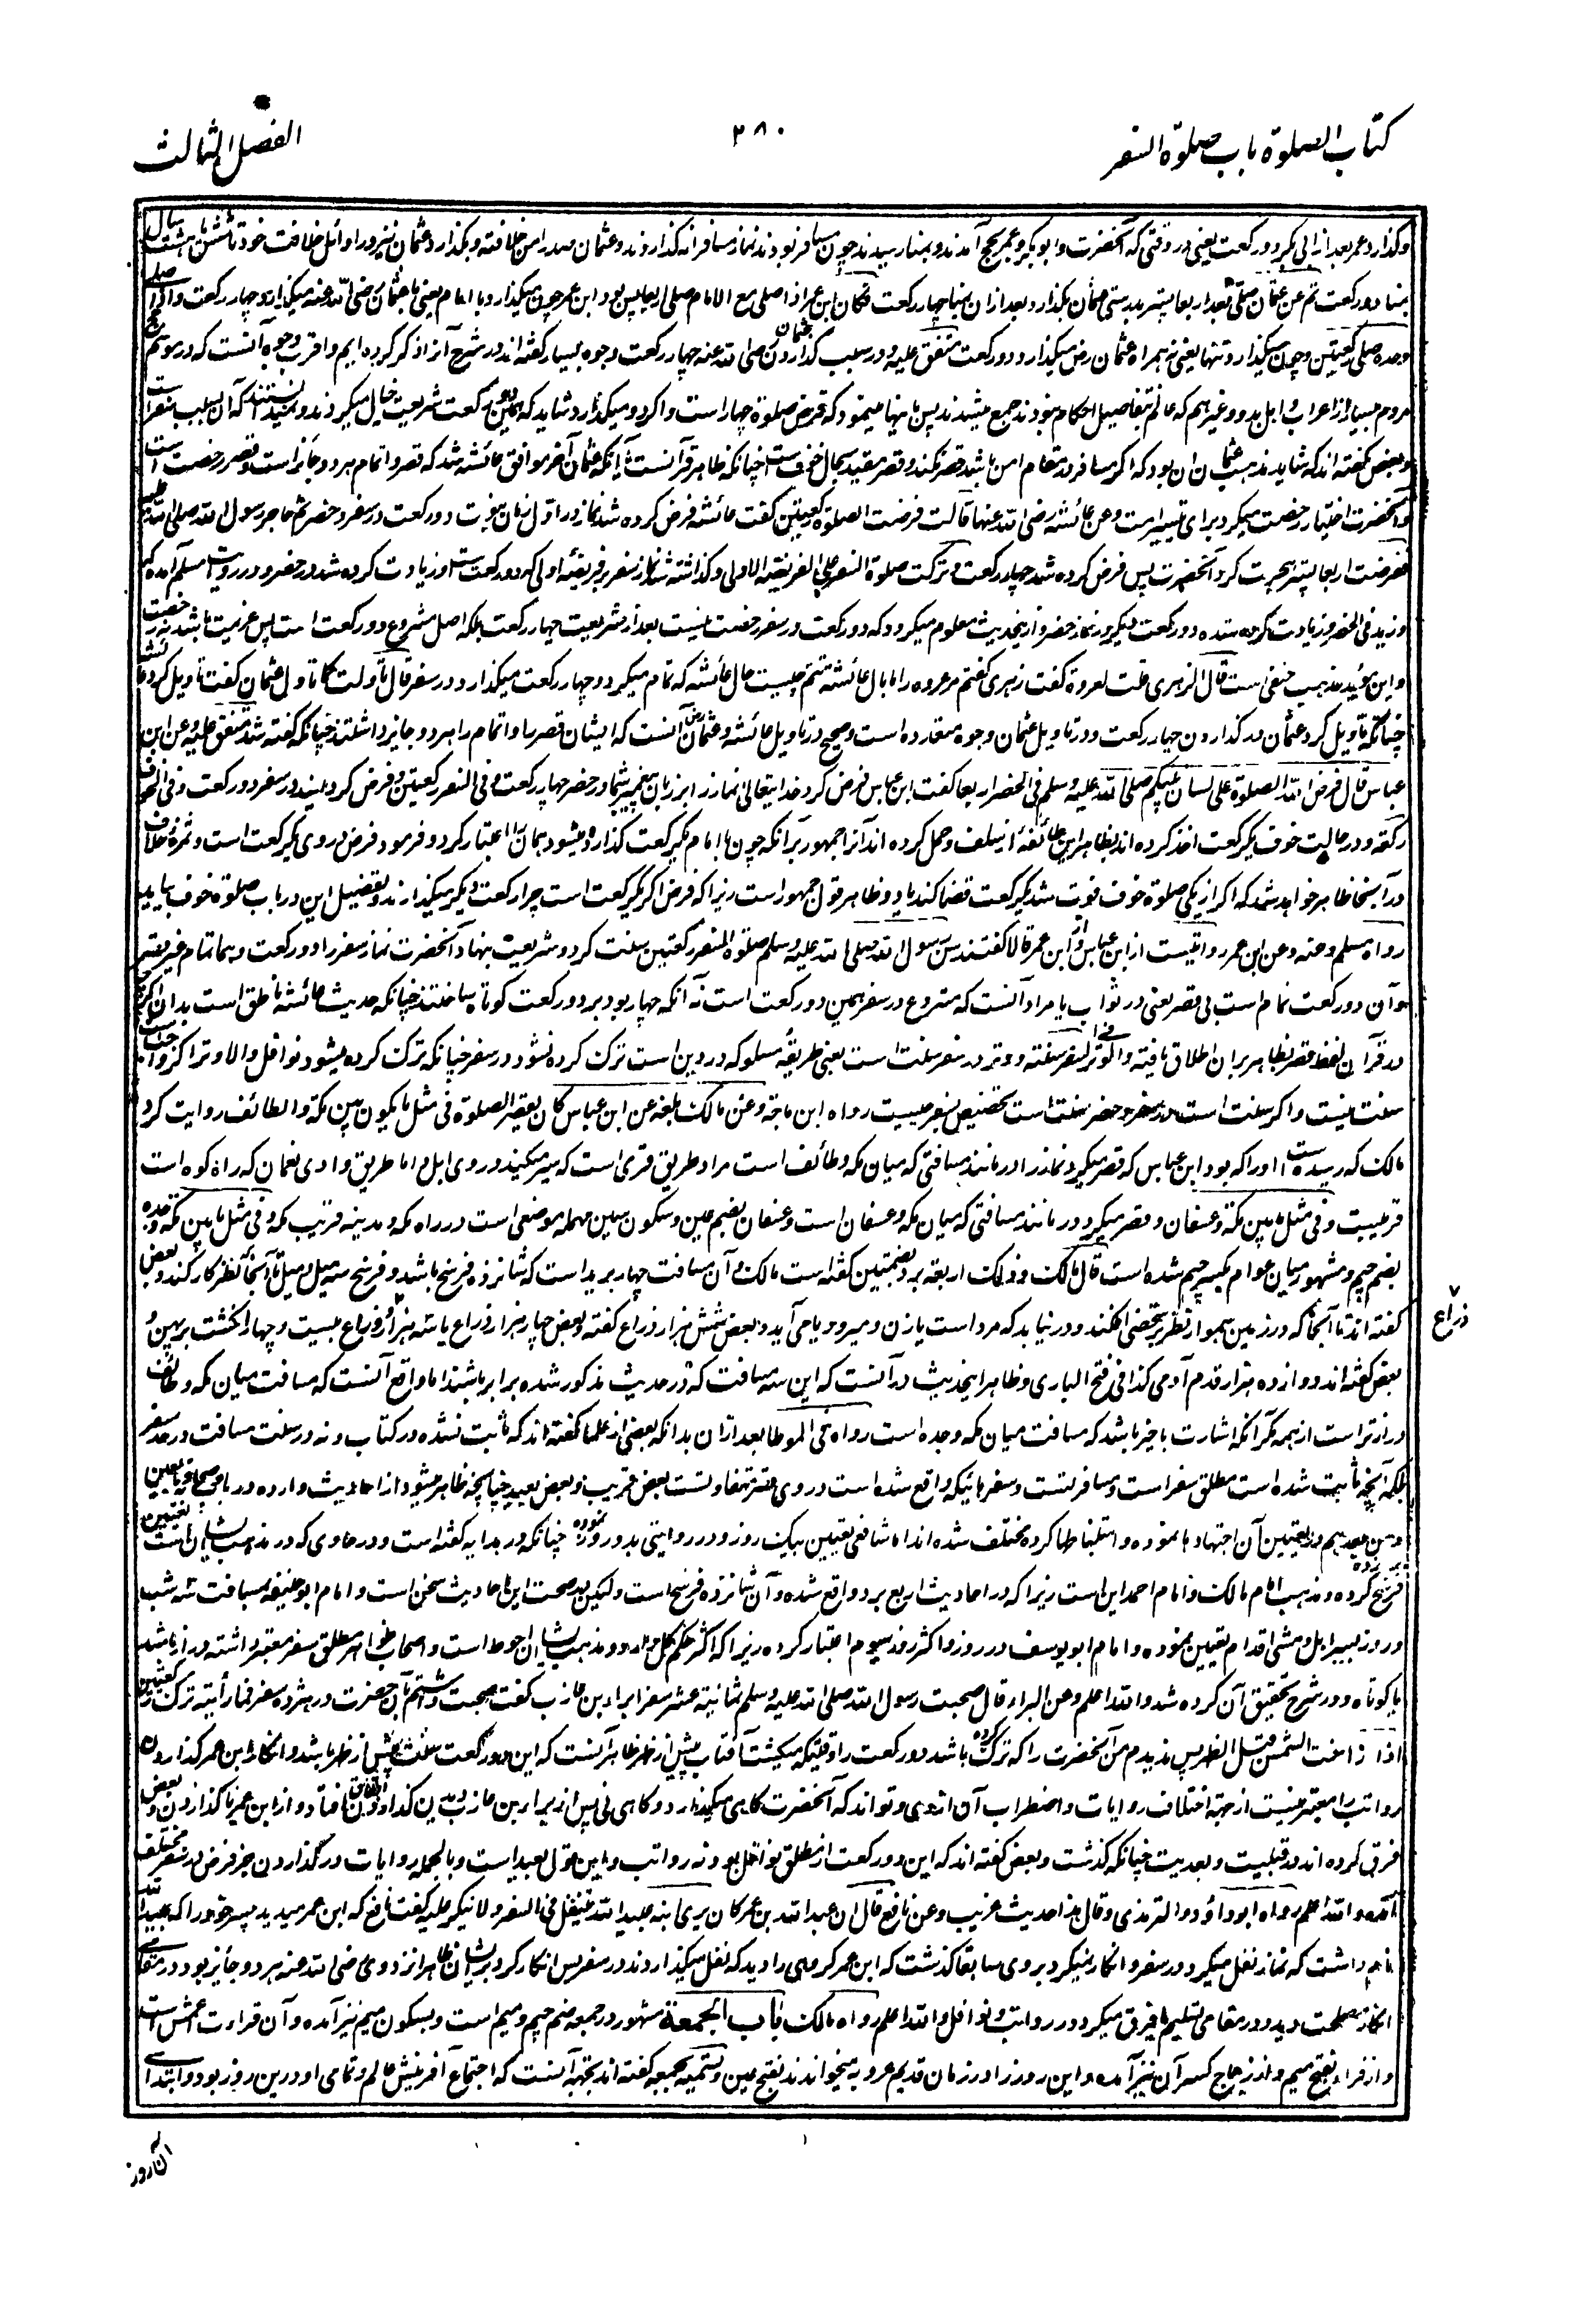 کتاب الصلوة باب صلوة السفر
۲۸۰
الفصل الثالث
وکذارد عمر بعد از ابی بکر دو رکعت یعنی در وقتی که آنحضرت و ابو بکر و عمر بحج آمدند و بمنا رسیدند چون مسافر بودند نماز مسافرانه گذاردند و عثمان صدرا من خلافته و بگذارد عثمان نیز در اوائل خلافت خود تا شش یا هشت سال
بمنا دو رکعت ثم ان عثمان صلی بعد اربعا پستر بدرستی عثمان بگذارد بعد ازان بمنا چهار رکعت فکان ابن عمر اذا صلی مع الامام صلی اربعا پس بود ابن عمر چون میگذارد با امام یعنی با عثمان رضی الله عنه میگذارد چهار رکعت و اذا صلی
وحده صلی رکعتین و چون میگذارد تنها یعنی نه همراه عثمان رض میگذارد دو رکعت متفق علیه و در سبب گذاردن عثمان رضی الله عنه چهار رکعت وجوه بسیار گفته اند در شرح آنرا ذکر کرده ایم و اقرب وجوه آنست که در موسم حج
مردم بسیار از اعراب و اهل بدو و غیرهم که عالم بتفاصیل احکام نبودند جمع میشدند پس باینها مینمود که فرض صلوة چهار است و اگر دو میگذارد شاید که همین دو رکعت شریعت خیال میکردند و نمیدانستند که آن بسبب سفر است
و بعض گفته اند که شاید مذهب عثمان آن بود که اگر مسافر در مقام امن باشد قصر نکند و قصر مقید بحال خوف است چنانکه ظاهر قرآنست یا آنکه عثمان آخر موافق عائشه شد که قصر و اتمام هر دو جائز است و قصر رخصت است
و آنحضرت اختیار رخصت میکرد برای تیسیر امت وعن عائشة رضی الله عنها قالت فرضت الصلوة رکعتین گفت عائشه فرض کرده شد نماز در اول زمان نبوت دو رکعت در سفر و حضر ثم هاجر رسول الله صلی الله علیه
ففرضت اربعا پستر هجرت کرد آنحضرت پس فرض کرده شد چهار رکعت و ترکت صلوة السفر علی الفریضة الاولی و گذاشته شد نماز سفر بر فریضهٔ اولی که دو رکعت است و زیادت کرده شد در حضر و در روایت مسلم آمده که
وزید فی الحضر و زیادت کرده شده دو رکعت دیگر در نماز حضر و ازینحدیث معلوم میگردد که دو رکعت در سفر رخصت نیست بعد از شریعت چهار رکعت بلکه اصل مشروع دو رکعت است پس عزیمت باشد نه رخصت
و این مؤید مذهب حنفی است قال الزهری قلت لعروة گفت زهری گفتم مر عروه را ما بال عائشة تتم چیست حال عائشه که تمام میکرد و چهار رکعت میگذارد در سفر قال تاولت کما تاول عثمان گفت تاویل کرد عائشه
چنانکه تاویل کرد عثمان در گذاردن چهار رکعت و در تاویل عثمان وجوه متعدده است و صحیح در تاویل عائشه و عثمان آنست که ایشان قصر را و اتمام را هر دو جایز داشتند چنانکه گفته شد متفق علیه وعن ابن
عباس قال فرض الله الصلوة علی لسان نبیکم صلی الله علیه وسلم فی الحضر اربعا گفت ابن عباس فرض کرد خدا یتعالی نماز را بر زبان پیغمبر شما در حضر چهار رکعت و فی السفر رکعتین و فرض گردانید در سفر دو رکعت و فی الخوف
رکعة و در حالت خوف یک رکعت اخذ کرده اند بظاهر این طائفهٔ از سلف و حمل کرده اند آنرا جمهور بر آنکه چون با امام یک رکعت گذارده میشود همان را اعتبار کرد و فرمود فرض در وی یک رکعت است و ثمرهٔ خلاف
در آنجا ظاهر خواهد شد که اگر از یکی صلوة خوف فوت شد یک رکعت قضا کند یا دو و ظاهر قول جمهور است زیرا که فرض اگر یک رکعت است چرا رکعت دیگر میگذارند و تفضیل این در باب صلوة خوف بیاید
رواه مسلم وعنه وعن ابن عمر روایتست از ابن عباس و از ابن عمر قالا گفتند سن رسول الله صلی الله علیه وسلم صلوة السفر رکعتین سنت کرد و شریعت نهاد آنحضرت نماز سفر را دو رکعت وهما تمام غیر قصر
و آن دو رکعت تمام است بی قصر یعنی در ثواب یا مراد آنست که مشروع در سفر همین دو رکعت است نه آنکه چهار بود بر دو رکعت کوتاه ساختند چنانکه حدیث عائشه ناطق است بدان اگرچه
در قرآن لفظ قصر بظاهر بران اطلاق یافته و الوتر فی السفر سنة و وتر در سفر سنت است یعنی طریقهٔ مسلوکه در دین است ترک کرده نشود در سفر چنانکه ترک کرده میشود نوافل والا وتر اگر واجب است
سنت نیست و اگر سنت است در سفر و حضر سنت است تخصیص بسفر چیست رواه ابن ماجة وعن مالک بلغه عن ابن عباس کان یقصر الصلوة فی مثل ما یکون بین مکة و الطائف روایت کرد
مالک که رسیده است او را که بود ابن عباس که قصر میکرد نماز را در مانند مسافتی که میان مکه و طائف است مراد طریق قری است که سیر میکنند در وی ابل اما طریق وادی نعمان که راه کوه است
قریبست و فی مثل ما بین مکة و عسفان و قصر میکرد در مانند مسافتی که میان مکه و عسفان است و عسفان بضم عین و سکون سین مهمله موضعی است در راه مکه و مدینه قریب مکه و فی مثل ما بین مکة و جدة
بضم جیم و مشهور میان عوام بکسر جیم شده است قال مالک و ذلک اربعة برد بضمتین گفته است مالک و آن مسافت چهار برید است که شانزده فرسخ باشد و فرسخ سه میل و میل تا آنجا که نظر کار کند و بعض
گفته اند تا آنجا که در زمین هموار نظر بر شخصی افکنند و در نیابد که مرد است یا زن و میرود یا می آید و بعض شش هزار ذراع گفته و بعض چهار هزار ذراع یا سه هزار ذراع و ذراع بیست و چهار انگشت بر پهن و
ذراع
بعض گفته اند دوازده هزار قدم آدمی کذا فی فتح الباری و ظاهر اینحدیث در آنست که این سه مسافت که در حدیث مذکور شده برابر باشند اما واقع آنست که مسافت میان مکه و طائف
دراز تر است از همه مگر آنکه اشارت باخیر باشد که مسافت میان مکه و جده است رواه فی الموطا بعد ازان بدانکه بعضی از علما گفته اند که ثابت نشده در کتاب و نه در سنت مسافت در حد سفر
بلکه آنچه ثابت شده است مطلق سفر است و مسافرتست و سفرهائیکه واقع شده است در وی قصر متفاوتست بعض قریب و بعض بعید چنانچه ظاهر میشود از احادیث وارده در باب و صحابه و تابعین
و من بعدهم در تعیین آن اجتهادها نموده و استنباطها کرده مختلف شده اند اما شافعی تعیین بیک روز و در روایتی بدو روز نموده چنانکه در هدایه گفته است و در حاوی که در مذهب ایشان است تعیین بشانزده
فرسخ کرده و مذهب امام مالک و امام احمد این است زیرا که در احادیث اربع برد واقع شده و آن شانزده فرسخ است ولیکن در صحت این احادیث سخن است و امام ابو حنیفه بمسافت سه شب
و روز بسیر ابل و مشی اقدام تعیین نموده و امام ابو یوسف در دو روز و اکثر روز سیوم اعتبار کرده زیرا که اکثر حکم کل دارد و مذهب ایشان احوط است و اصحاب ظواهر مطلق سفر معتبر داشته دراز باشد
یا کوتاه و در شرح تحقیق آن کرده شد والله اعلم وعن البراء قال صحبت رسول الله صلی الله علیه وسلم ثمانیة عشر سفرا براء بن عازب گفت صحبت داشتم بآن حضرت در هژده سفر فما رأیته ترک رکعتین
اذا زاغت الشمس قبل الظهر پس ندیدم من آنحضرت را که ترک کرده باشد دو رکعت را وقتیکه میگشت آفتاب پیش از ظهر ظاهر آنست که این دو رکعت سنت پیش از ظهر باشد و انکار ابن عمر گذاردن
رواتب را معتبر نیست از جهة اختلاف روایات و اضطراب آن از وی و تواند که آنحضرت گاهی میگذارد و گاهی نی پس از براء بن عازب دیدن گذاردن اتفاق افتاد و از ابن عمر نا گذاردن و بعض
فرق کرده اند در قبلیت و بعدیت چنانکه گذشت و بعض گفته اند که این دو رکعت از مطلق نوافل بود نه رواتب و این قول بعید است و بالجمله روایات در گذاردن جز فرض در سفر مختلف
آمده والله اعلم رواه ابو داؤد و الترمذی و قال هذا حدیث غریب وعن نافع قال ان عبد الله بن عمر کان یری ابنه عبید الله یتنفل فی السفر ولا ینکر علیه گفت نافع که ابن عمر میدید پسر خود را که عبید الله
نام داشت که نماز نفل میکرد در سفر و انکار نمیکرد بر وی سابقا گذشت که ابن عمر گروهی را دید که نفل میگذاردند در سفر پس انکار کرد بر ایشان ظاهرا نزد وی رضی الله عنه هر دو جائز بود در مقامی
انکار مصلحت دید و در مقامی تسلیم یا فرق میکرد در رواتب و نوافل والله اعلم رواه مالک باب الجمعة مشهور در جمعه ضم جیم و میم است و بسکون میم نیز آمده و آن قراءت اعمش است
و از فراء بفتح میم و از زجاج کسر آن نیز آمده و این روز را در زمان قدیم عروبه میخواندند بفتح عین و تسمیه بجمعه گفته اند بجهة آنست که اجتماع آفرینش عالم و تمامی او درین روز بود و ابتدای
آن روز